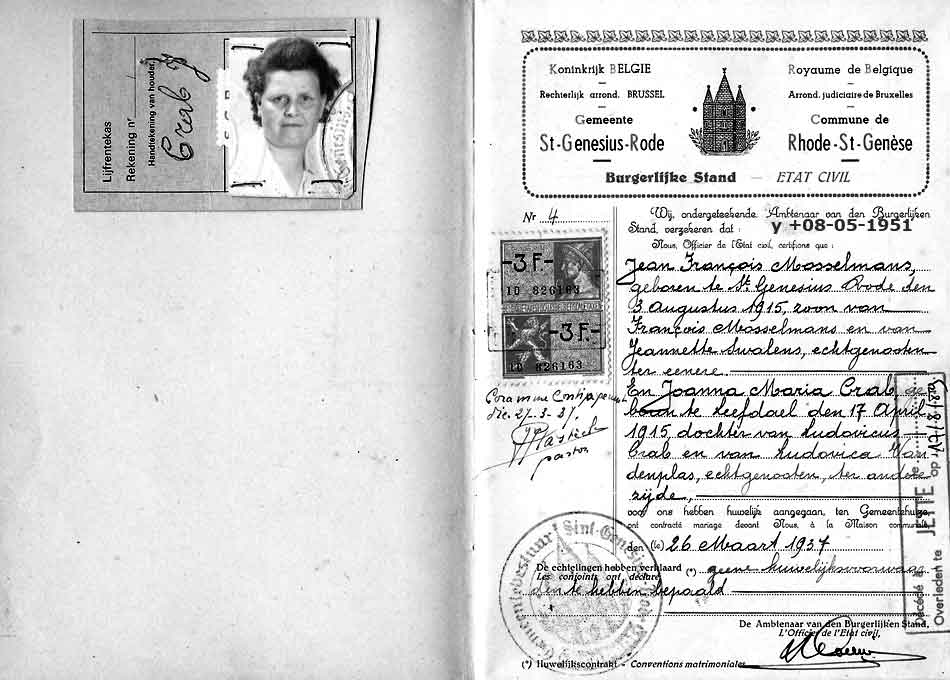 Lijfrentekas
Rekening nr
Handtekening van houder,
Crab J
Koninkrijk BELGIE
Rechterlijk arrond. BRUSSEL
Gemeente
St-Genesius-Rode
Royaume de Belgique
Arrond. judiciaire de Bruxelles
Commune de
Rhode-St-Genèse
Burgerlijke Stand — ETAT CIVIL
Nr 4
-3F.-
1D 826163
-3F.-
1D 826163
die 27-3-37
pastor
Wij, ondergeteekende, Ambtenaar van den Burgerlijken
Stand, verzekeren dat : y +08-05-1951
Nous, Officier de l'Etat civil, certifions que :
Jean François Mosselmans,
geboren te St Genesius Rode den
3 Augustus 1915, zoon van
François Mosselmans en van
Jeannette Swalens, echtgenoten
ter eenere.
En Joanna Maria Crab, ge
boren te Leefdael den 17 April
1915, dochter van Ludovicus
Crab en van Ludovica Van
denplas, echtgenoten, ter andere
zijde,
voor ons hebben huwelijk aangegaan, ten Gemeentehuize,
ont contracté mariage devant Nous, à la Maison communale,
den (le) 26 Maart 1937
De echtelingen hebben verklaard (*) geene huwelijksvoorwaar
Les conjoints ont déclaré
den te hebben bepaald
De Ambtenaar van den Burgerlijken Stand,
L'Officier de l'Etat civil,
(*) Huwelijkscontrakt - Conventions matrimoniales
Gemeentebestuur Sint-Genesius
Décédé à JETTE le
Overleden te op